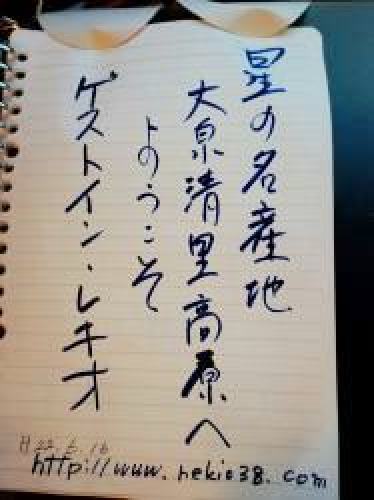 星の名産地
大泉清里高原へ
ようこそ
ゲストイン・レキオ
H22.6.16
http://www.rekio38.com